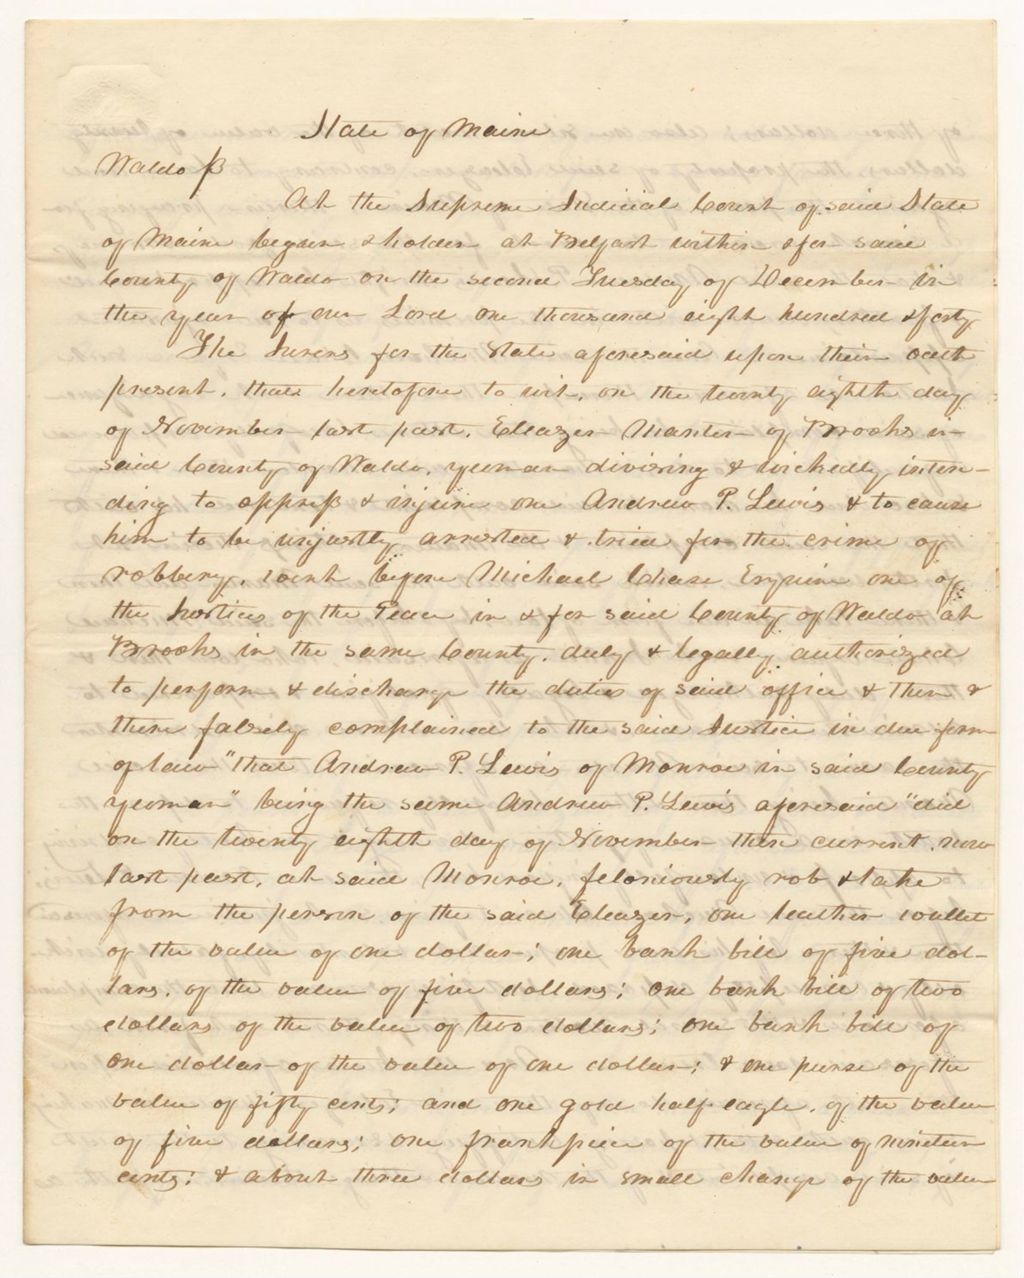 State of Maine
Waldo ss
At the Supreme Judicial Court of said State
of Maine begun & holden at Belfast within & for said
County of Waldo on the second Tuesday of December in
the year of our Lord one thousand eight hundred & forty
The Jurors for the State aforesaid upon their oath
present, that heretofore to wit, on the twenty eighth day
of November last past, Eleazer Manter of Brooks in
said County of Waldo, yeoman divising & wickedly inten-
ding to oppress & injure one Andrew P. Lewis & to cause
him to be unjustly arrested & tried for the crime of
robbery, went before Michael Chase Esquire one of
the Justices of the Peace in & for said County of Waldo at
Brooks in the same County, duly & legally authorized
to perform & discharge the duties of said office & then &
there falsely complained to the said Justice in due form
of law "that Andrew P. Lewis of Monroe in said County
yeoman" being the same Andrew P. Lewis aforesaid "did
on the twenty eighth day of November then current, now
last past, at said Monroe, feloniously rob & take
from the person of the said Eleazer, one leather wallet
of the value of one dollar; one bank bill of five dol-
lars, of the value of five dollars; one bank bill of two
dollars of the value of two dollars; one bank bill of
one dollar of the value of one dollar; & one purse of the
value of fifty cents; and one gold half-eagle, of the value
of five dollars; one frank piece of the value of nineteen
cents; & about three dollars in small change of the value